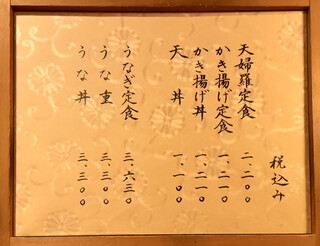 税込み
天婦羅定食 二、二〇〇
かき揚げ定食 一、二一〇
かき揚げ丼 一、二一〇
天丼 一、一〇〇
うなぎ定食 三、六三〇
うな重 三、三〇〇
うな丼 三、三〇〇